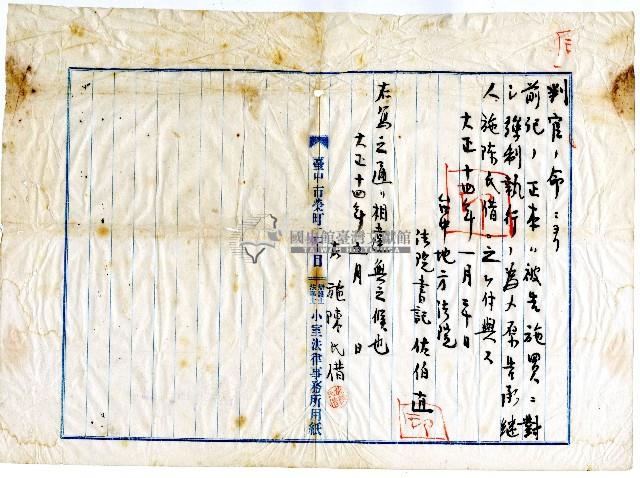 判官ノ命ニヨリ
前記ノ正本ハ被告施買ニ對
シ強制執行ノ為メ原告承継
人施陳氏借ニ之ヲ付與ス
大正十四年一月三十日
台中地方法院
法院書記 佐伯直
印
右寫之通リ相違無之候也
大正十四年 月 日
右 施陳氏借
臺中市榮町 丁目
辯護士
法學士
小室法律事務所用紙
國史館臺灣文獻館